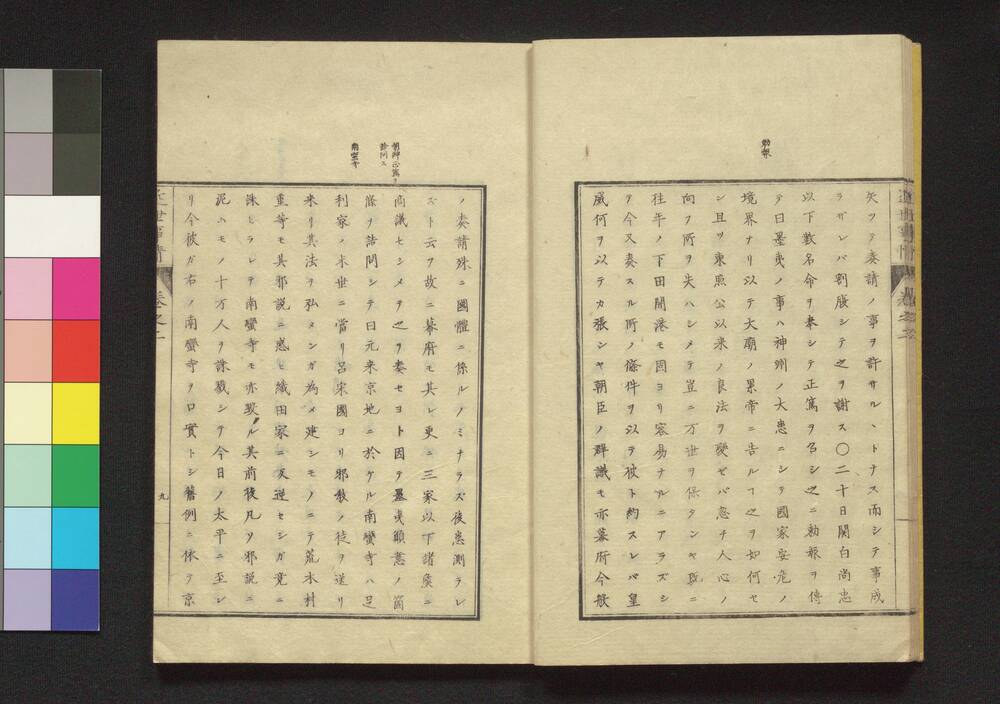 勅報
矢ツテ奏請ノ事ヲ許サルヽトナス而シテ事成
ラザレバ割腹シテ之ヲ謝ス〇二十日関白尚忠
以下数名命ヲ奉シテ正篤ヲ召シ之ニ勅報ヲ傳
テ曰墨夷ノ事ハ神州ノ大患ニシテ國家安危ノ
境界ナリ以テ大廟ノ累帝ニ告ルヿ之ヲ如何セ
ン且ツ東照公以来ノ良法ヲ變ゼバ忽チ人心ノ
向フ所ヲ失ハシメテ豈ニ万世ヲ保タンヤ既ニ
往年ノ下田開港モ固ヨリ容易ナルニアラズシ
テ今又奏スル所ノ條件ヲ以テ彼ト約スレバ皇
威何ヲ以テカ張シヤ朝臣ノ群議モ亦幕府今般
ノ奏請殊ニ國體ニ係ルノミナラズ後患測ラレ
ズト云フ故ニ幕府モ其レ更ニ三家以下諸侯ニ
商議セシメテ之ヲ奏セヨト因テ墨夷願意ノ箇
條ヲ詰問シテ曰元来京地ニ於ケル南蠻寺ハ足
利家ノ末世ニ當リ呂宋國ヨリ邪教ノ徒ヲ送リ
来リ其法ヲ弘メンガ為メ建シモノニテ荒木村
重等モ其邪説ニ惑ヒ織田家ニ反逆セシガ竟ニ
誅セラレテ南蠻寺モ亦毀ル其前後凡ソ邪説ニ
泥ムモノ十万人ヲ誅戮シテ今日ノ太平ニ至レ
リ今彼ガ右ノ南蠻寺ヲロ實トシ舊例ニ依テ京
朝紳正篤ヲ
詰問ス
南蠻寺
近世事情
卷之二
九